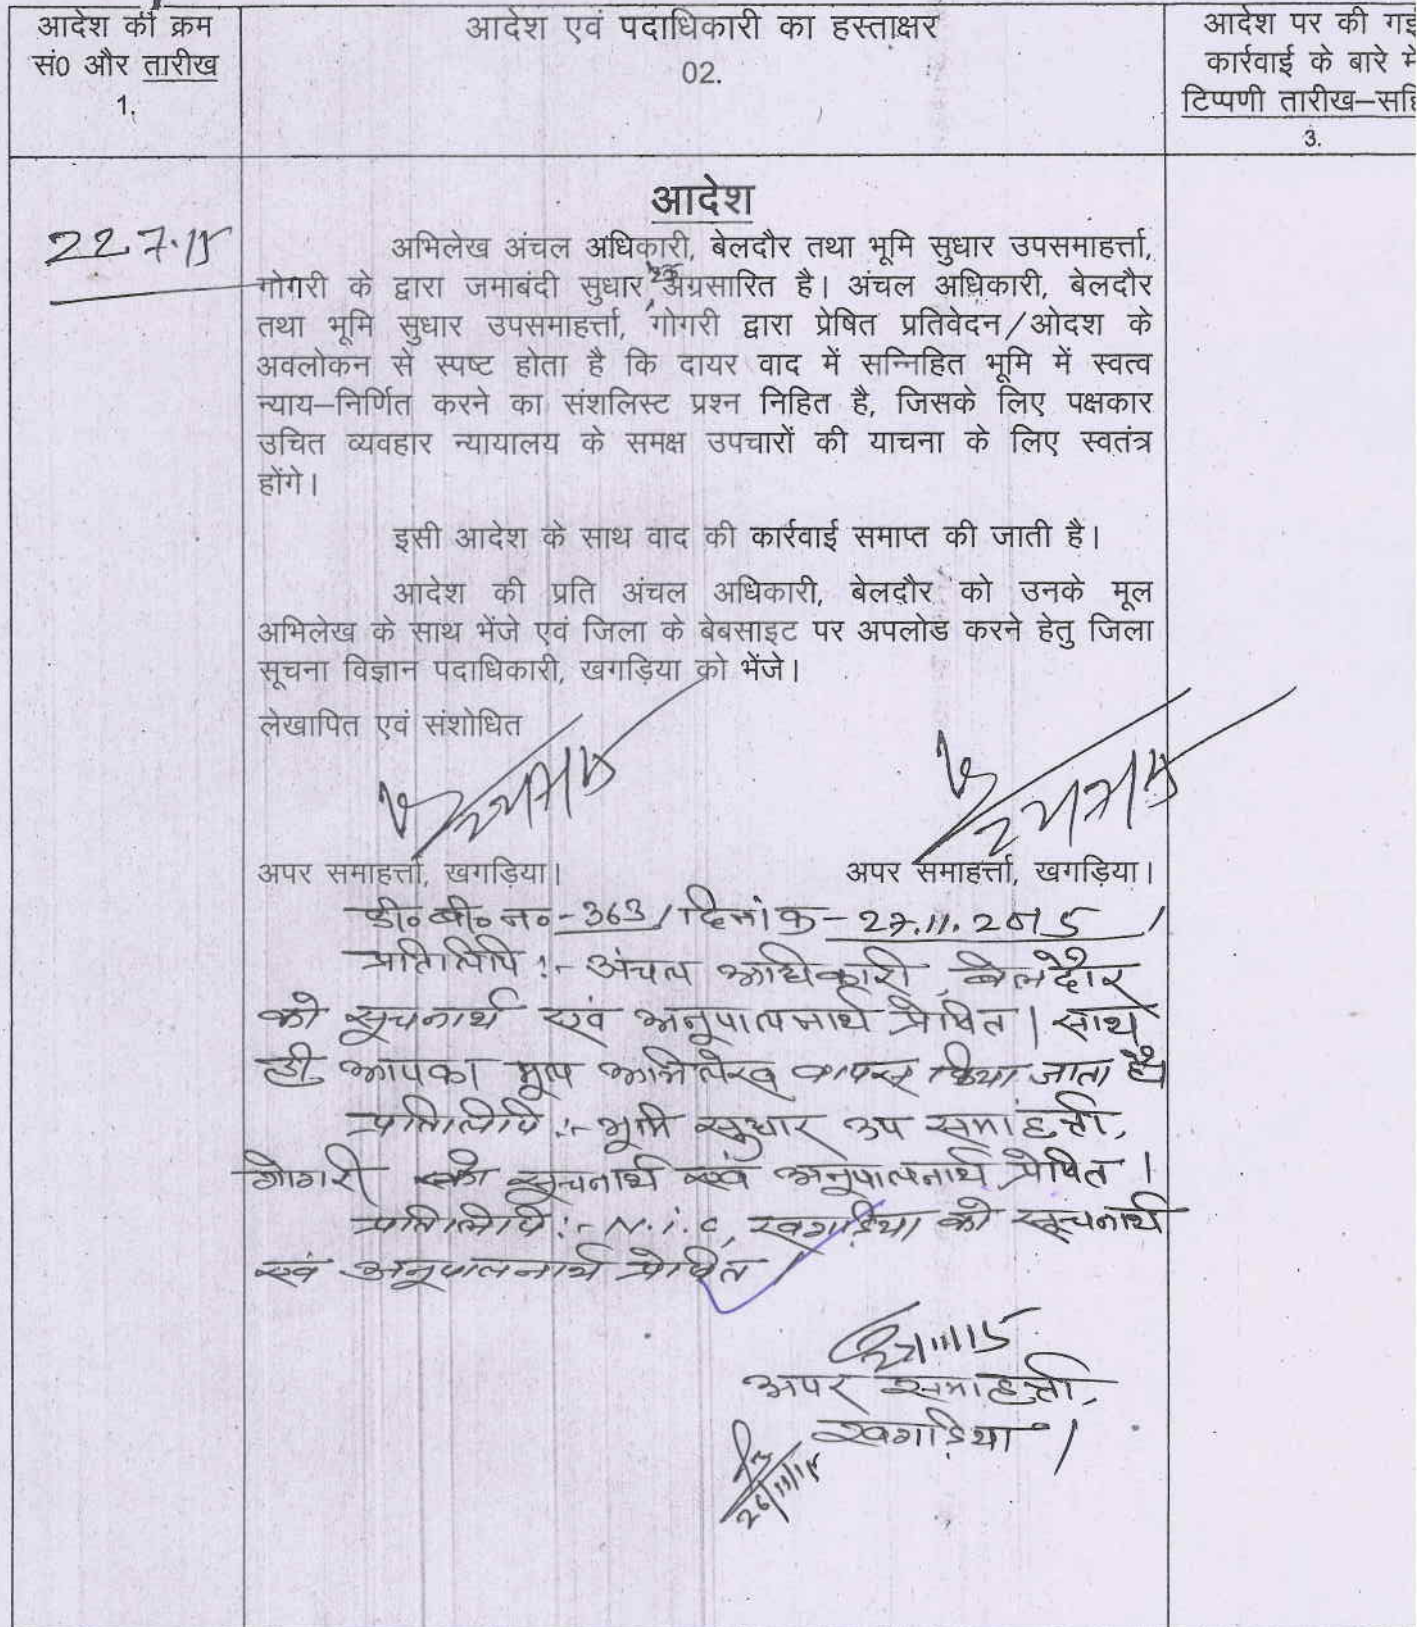 आदेश की क्रम
सं0 और तारीख
1.
आदेश एवं पदाधिकारी का हस्ताक्षर
02.
आदेश पर की गई
कार्रवाई के बारे में
टिप्पणी तारीख–सहि
3.
आदेश
22.7.15
अभिलेख अंचल अधिकारी, बेलदौर तथा भूमि सुधार उपसमाहर्त्ता,
गोगरी के द्वारा जमाबंदी सुधार अग्रसारित है। अंचल अधिकारी, बेलदौर
तथा भूमि सुधार उपसमाहर्त्ता, गोगरी द्वारा प्रेषित प्रतिवेदन/ओदश के
अवलोकन से स्पष्ट होता है कि दायर वाद में सन्निहित भूमि में स्वत्व
न्याय–निर्णित करने का संशलिस्ट प्रश्न निहित है, जिसके लिए पक्षकार
उचित व्यवहार न्यायालय के समक्ष उपचारों की याचना के लिए स्वतंत्र
होंगे।
इसी आदेश के साथ वाद की कार्रवाई समाप्त की जाती है।
आदेश की प्रति अंचल अधिकारी, बेलदौर को उनके मूल
अभिलेख के साथ भेंजे एवं जिला के बेबसाइट पर अपलोड करने हेतु जिला
सूचना विज्ञान पदाधिकारी, खगड़िया को भेंजे।
लेखापित एवं संशोधित
अपर समाहर्त्ता, खगड़िया।
अपर समाहर्त्ता, खगड़िया।
डी० बी० न० - 363/ दिनांक - 27.11.2015 /
प्रतिलिपि :- अंचल अधिकारी, बेलदौर
को सूचनार्थ एवं अनुपालनार्थ प्रेषित। साथ
ही आपका मूल अभिलेख वापस किया जाता है।
प्रतिलिपि :- भूमि सुधार उप समाहर्त्ता,
गोगरी को सूचनार्थ एवं अनुपालनार्थ प्रेषित।
प्रतिलिपि :- N.i.c, खगड़िया को सूचनार्थ
एवं अनुपालनार्थ प्रेषित
अपर समाहर्त्ता,
खगड़िया।
26/11/15